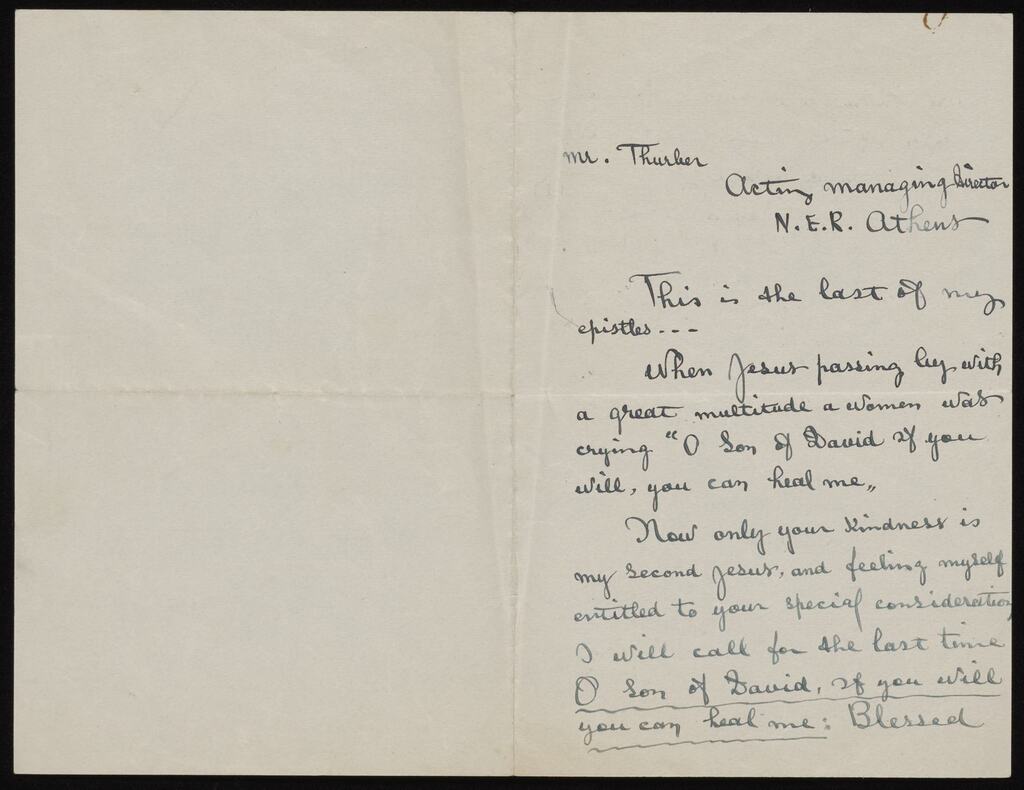 mr. Thurber
Acting managing Director
N.E.R. Athens
This is the last of my
epistles ---
When Jesus passing by with
a great multitude a women was
crying "O Son of David if you
will, you can heal me„
Now only your kindness is
my second Jesus, and feeling myself
entitled to your special consideration
I will call for the last time
O Son of David, if you will
you can heal me: Blessed